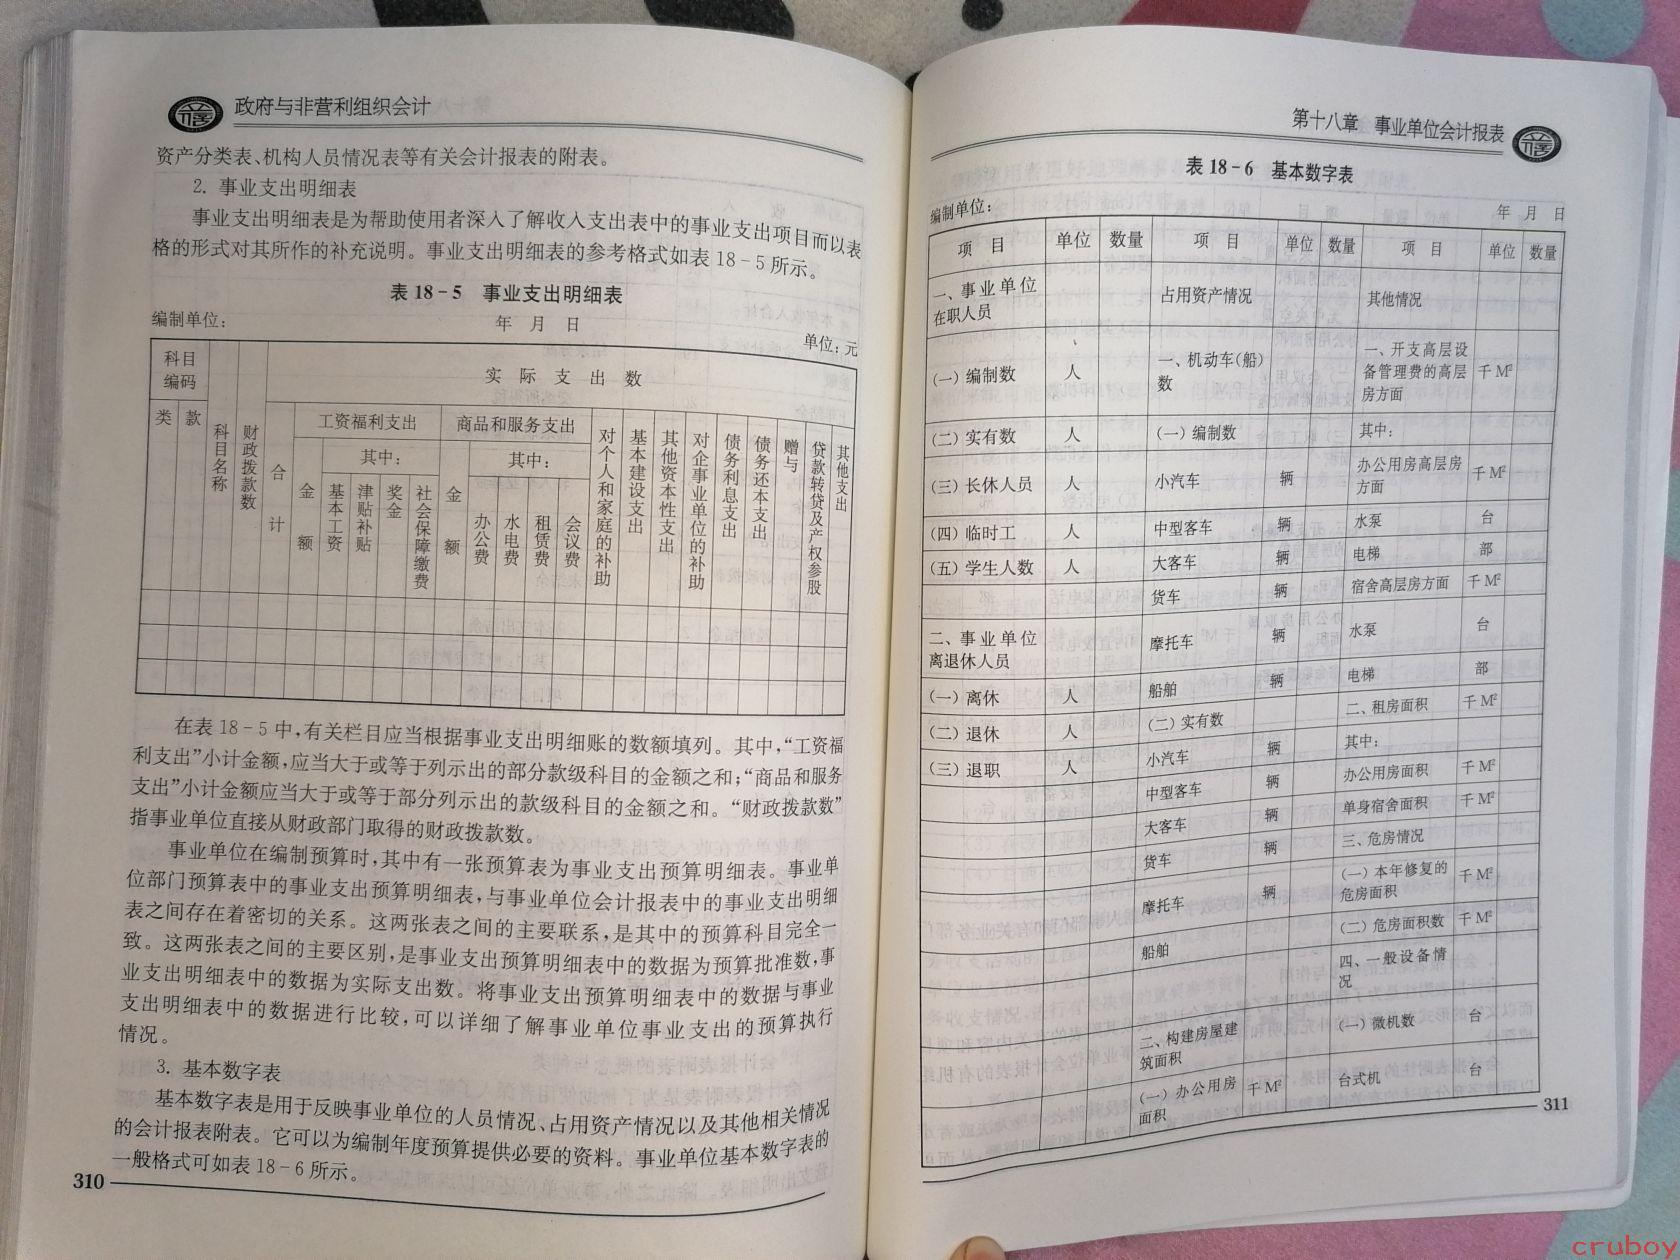 政府与非营利组织会计
资产分类表、机构人员情况表等有关会计报表的附表。
2. 事业支出明细表
事业支出明细表是为帮助使用者深入了解收入支出表中的事业支出项目而以表
格的形式对其所作的补充说明。事业支出明细表的参考格式如表 18－5 所示。
表 18－5 事业支出明细表
编制单位: 年 月 日 单位: 元
科目编码 科目名称 财政拨款数 实际支出数
类 款 合计 工资福利支出 商品和服务支出 对个人和家庭的补助 基本建设支出 其他资本性支出 对企事业单位的补助 债务利息支出 债务还本支出 赠与 贷款转贷及产权参股 其他支出
金额 其中: 金额 其中:
基本工资 津贴补贴 奖金 社会保障缴费 办公费 水电费 租赁费 会议费
在表 18－5 中,有关栏目应当根据事业支出明细账的数额填列。其中,“工资福
利支出”小计金额,应当大于或等于列示出的部分款级科目的金额之和;“商品和服务
支出”小计金额应当大于或等于部分列示出的款级科目的金额之和。“财政拨款数”
指事业单位直接从财政部门取得的财政拨款数。
事业单位在编制预算时,其中有一张预算表为事业支出预算明细表。事业单
位部门预算表中的事业支出预算明细表,与事业单位会计报表中的事业支出明细
表之间存在着密切的关系。这两张表之间的主要联系,是其中的预算科目完全一
致。这两张表之间的主要区别,是事业支出预算明细表中的数据为预算批准数,事
业支出明细表中的数据为实际支出数。将事业支出预算明细表中的数据与事业
支出明细表中的数据进行比较,可以详细了解事业单位事业支出的预算执行
情况。
3. 基本数字表
基本数字表是用于反映事业单位的人员情况、占用资产情况以及其他相关情况
的会计报表附表。它可以为编制年度预算提供必要的资料。事业单位基本数字表的
一般格式可如表 18－6 所示。
310
第十八章 事业单位会计报表
表 18－6 基本数字表
编制单位: 年 月 日
项 目 单位 数量 项 目 单位 数量 项 目 单位 数量
一、事业单位在职人员 占用资产情况 其他情况
(一) 编制数 人 一、机动车(船)数 一、开支高层设备管理费的高层房方面 千 M²
(二) 实有数 人 (一) 编制数 其中:
(三) 长休人员 人 小汽车 辆 办公用房高层房方面 千 M²
(四) 临时工 人 中型客车 辆 水泵 台
(五) 学生人数 人 大客车 辆 电梯 部
货车 辆 宿舍高层房方面 千 M²
二、事业单位离退休人员 摩托车 辆 水泵 台
(一) 离休 人 船舶 辆 电梯 部
(二) 退休 人 (二) 实有数 二、租房面积 千 M²
(三) 退职 人 小汽车 辆 其中:
中型客车 辆 办公用房面积 千 M²
大客车 辆 单身宿舍面积 千 M²
货车 辆 三、危房情况
摩托车 辆 (一) 本年修复的危房面积 千 M²
船舶 (二) 危房面积数 千 M²
四、一般设备情况
二、构建房屋建筑面积 (一) 微机数 台
(一) 办公用房面积 千 M² 台式机 台
311
cruboy